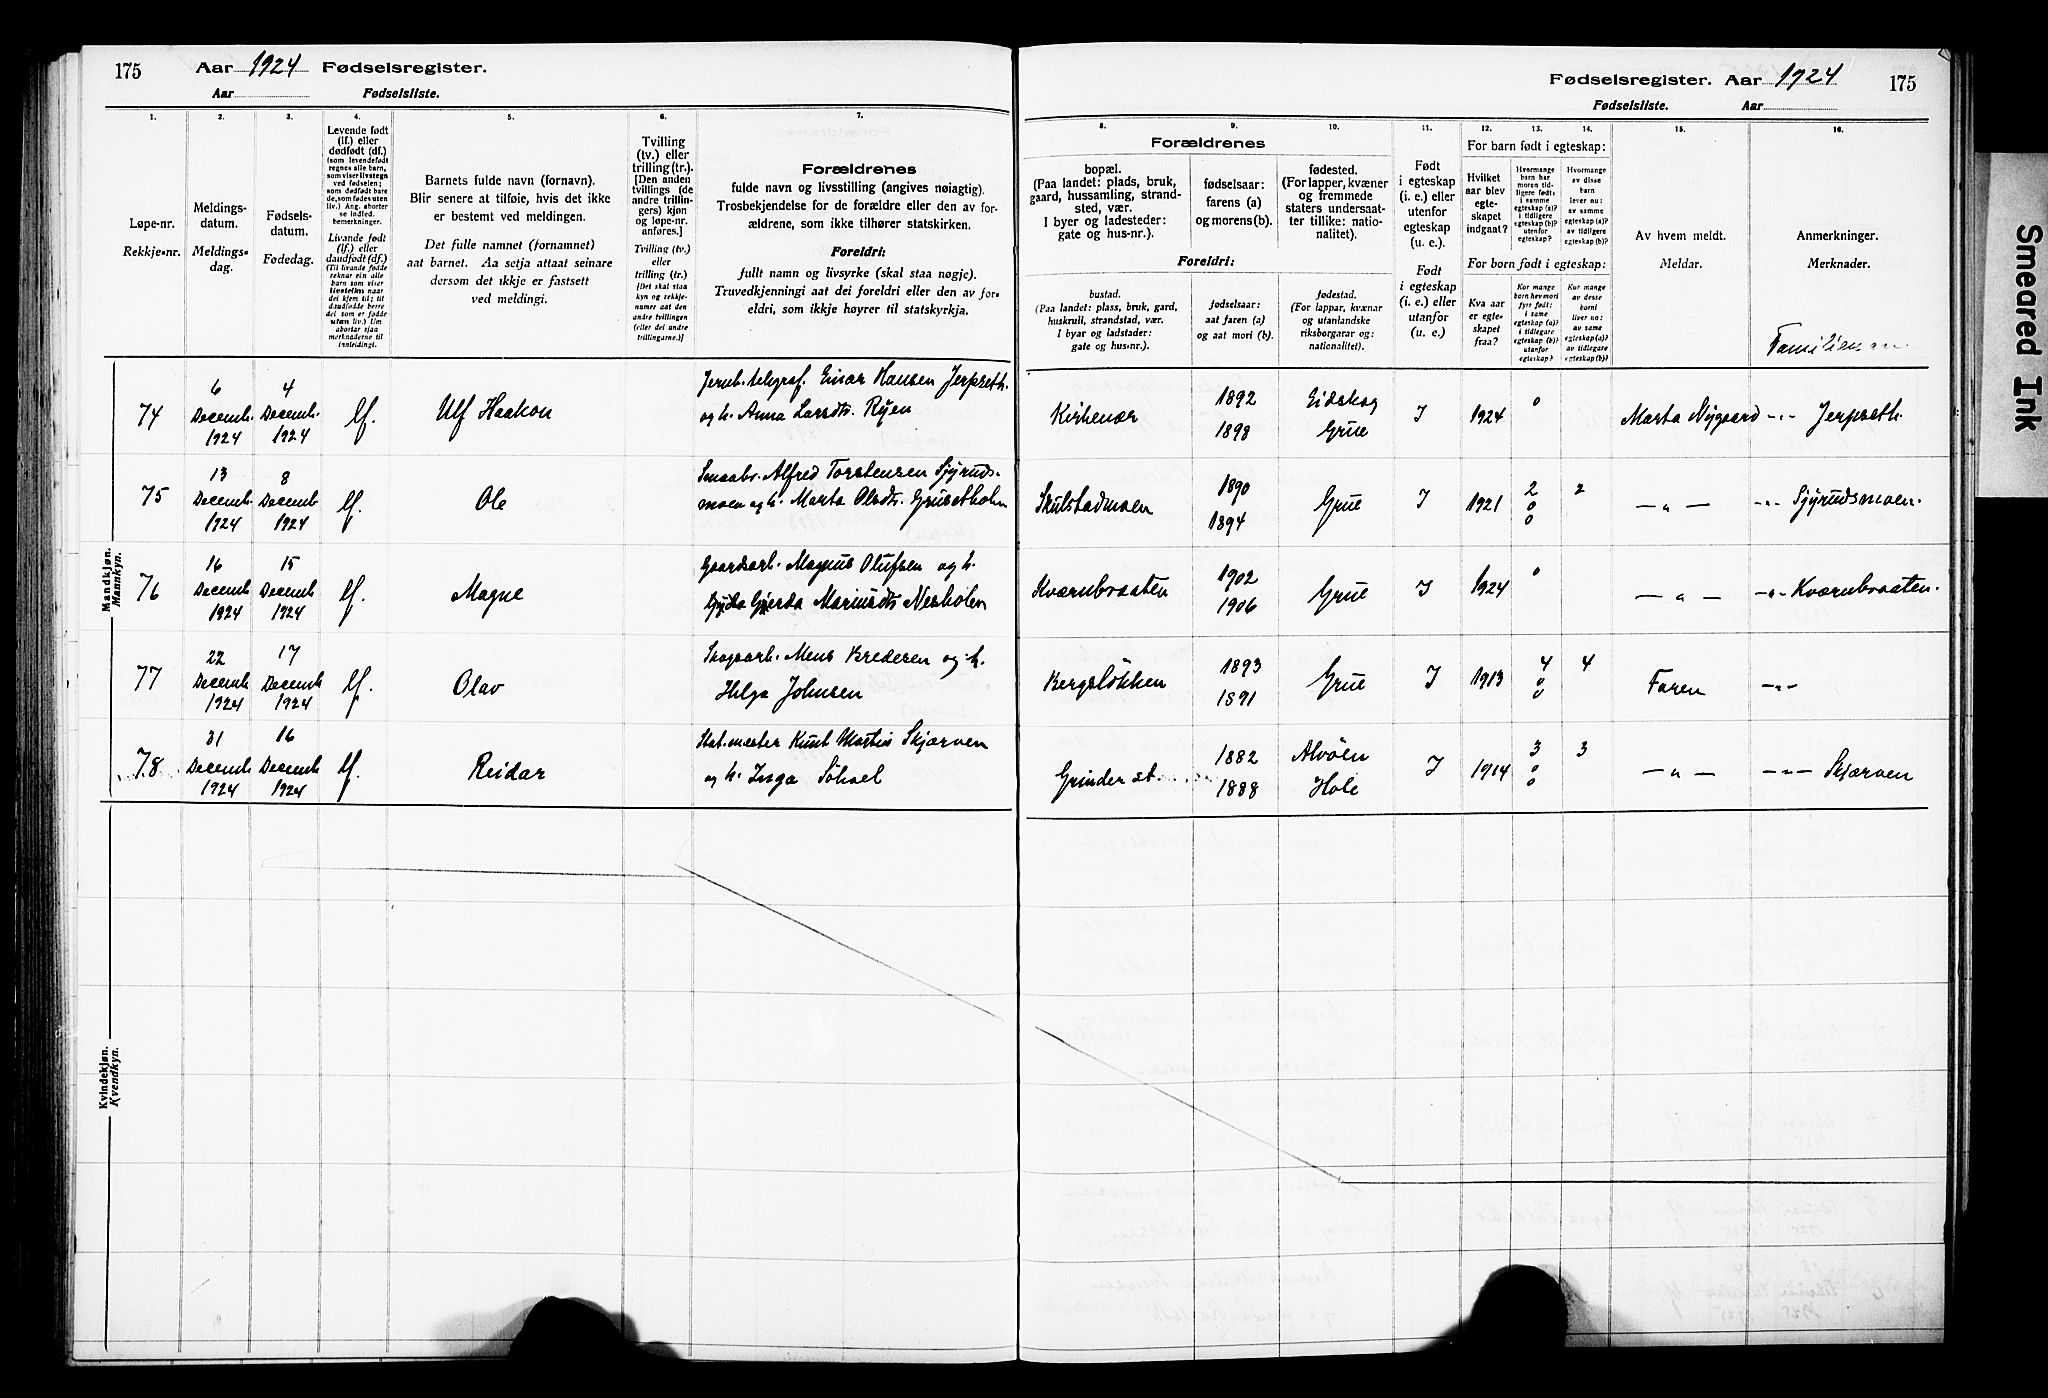 175 Aar 1924 Fødselsregister.
Aar Fødselsliste.
1. 2. 3. 4. 5. 6. 7.
Løpe-nr.
Rekkje-nr.
Meldings-
datum.
Meldings-
dag.
Fødsels-
datum.
Fødedag.
Levende født
(lf.) eller
dødfødt (df.)
(som levendefødt
regnes alle barn,
som viser livstegn
ved fødselen;
som dødfødt bare
de, som fødes uten
liv.) Ang. aborter
se indled.
bemerkninger.
Livande født
(lf.) eller
daudfødt (df.)
(Til livande fødde
reknar ein alle
born som viser
livsteikn naar
det kjem til; til
daudfødde berre
dei som er fødde
utan liv.) Um
abortar sjaa
merknaderne til
innleiding).
Barnets fulde navn (fornavn).
Blir senere at tilføie, hvis det ikke
er bestemt ved meldingen.
Det fulle namnet (fornamnet)
aat barnet. Aa setja attaat seinare
dersom det ikkje er fastsett
ved meldingi.
Tvilling
(tv.) eller
trilling (tr.).
[Den anden
tvillings (de
andre trillin-
gers) kjøn
og løpe-nr.
anføres.]
Tvilling (tv.)
eller
trilling (tr.)
[Det skal staa
kyn og rekkje-
numer aat den
andre tvillingen
(eller dei andre
trillingarne.)]
Forældrenes
fulde navn og livsstilling (angives nøiagtig).
Trosbekjendelse for de forældre eller den av for-
ældrene, som ikke tilhører statskirken.
Foreldri:
fullt namn og livsyrke (skal staa nøgje).
Truvedkjenningi aat dei foreldri eller den av for-
eldri, som ikkje høyrer til statskyrkja.
Mandkjøn.
Mannkyn.
74
6
Decemb.
1924
4
Decemb.
1924
lf.
Ulf Haakon
Jernb. telegraf. Einar Hansen Jerpseth.
og h. Anna Larsdtr. Ryen
75
13
Decemb.
1924
8
Decemb
1924
lf.
Ole
Smaabr. Alfred Torstensen Sjyruds-
moen og h. Marta Olsdtr. Grusetholm
76
16
Decemb.
1924
15
Decemb.
1924
lf.
Magne
Gaardsarb. Magnus Olufsen og h.
Gjerda Mariusdtr Nesholen
77
22
Decemb
1924
17
Decemb
1924
lf.
Olav
Skogsarb. Mens Bredesen og h.
Helga Johnsen
78
31
Decemb.
1924
16
Decemb.
1924
lf.
Reidar
Stat. mester Knut Martin Skjærven
og h. Inga Søhoel
Kvindekjøn.
Kvendkyn.
Fødselsregister. Aar 1924 175
Fødselsliste. Aar
8. 9. 10. 11. 12. 13. 14. 15. 16.
Forældrenes
bopæl.
(Paa landet: plads, bruk,
gaard, hussamling, strand-
sted, vær.
I byer og ladesteder:
gate og hus-nr.).
fødselsaar:
farens (a)
og morens (b).
fødested.
(For lapper, kvæner
og fremmede
staters undersaat-
ter tillike: natio-
nalitet).
Foreldri:
bustad.
(Paa landet: plass, bruk, gard,
huskrull, strandstad, vær.
I byar og ladstader:
gate og hus-nr.).
fødselsaar:
aat faren (a)
og aat mori (b).
fødestad.
(For lappar, kvænar
og utanlandske
riksborgarar og:
nationalitet).
Født
i egteskap
(i. e.) eller
utenfor
egteskap
(u. e.).
Født
i egteskap
(i. e.) eller
utanfor
(u. e.).
For barn født i egteskap:
Hvilket
aar blev
egte-
skapet
indgaat?
Hvormange
barn har
moren tid-
ligere født:
i samme
egteskap (a)?
i tidligere
egteskap (b)?
utenfor
egteskap?
Hvormange
av disse
barn
lever nu:
av samme
egteskap (a)?
av tidligere
egteskap (b)?
For born født i egteskap:
Kva aar
er egte-
skapet
fraa?
Kor mange
born hev mori
fyrr født:
i same
egteskap (a)?
i tidlegare
egteskap (b)?
utanfor
egteskap?
Kor mange
av desse
born
liver no:
av same
egteskap (a)?
av tidlegare
egteskap (b)?
Av hvem meldt.
Meldar.
Anmerkninger.
Merknader.
Familienavn
Kirkenær
1892
1898
Eidskog
Grue
I 1924 0 Marta Nygaard -"- Jerpseth.
Skulstadmoen
1890
1894
Grue
I 1921
2
0
0
2
—"— -"- Sjyrudsmoen.
Kværnbraaten
1902
1906
Grue
I 1924 0 —"— -"- Kværnbraaten.
Bergsløkken
1893
1891
Grue
I 1913
4
0
0
4
Faren -"-
Grinder st.
1882
1888
Alvøen
Hole
I 1914
3
0
0
3
—"— -"- Skjærven
Smeared Ink